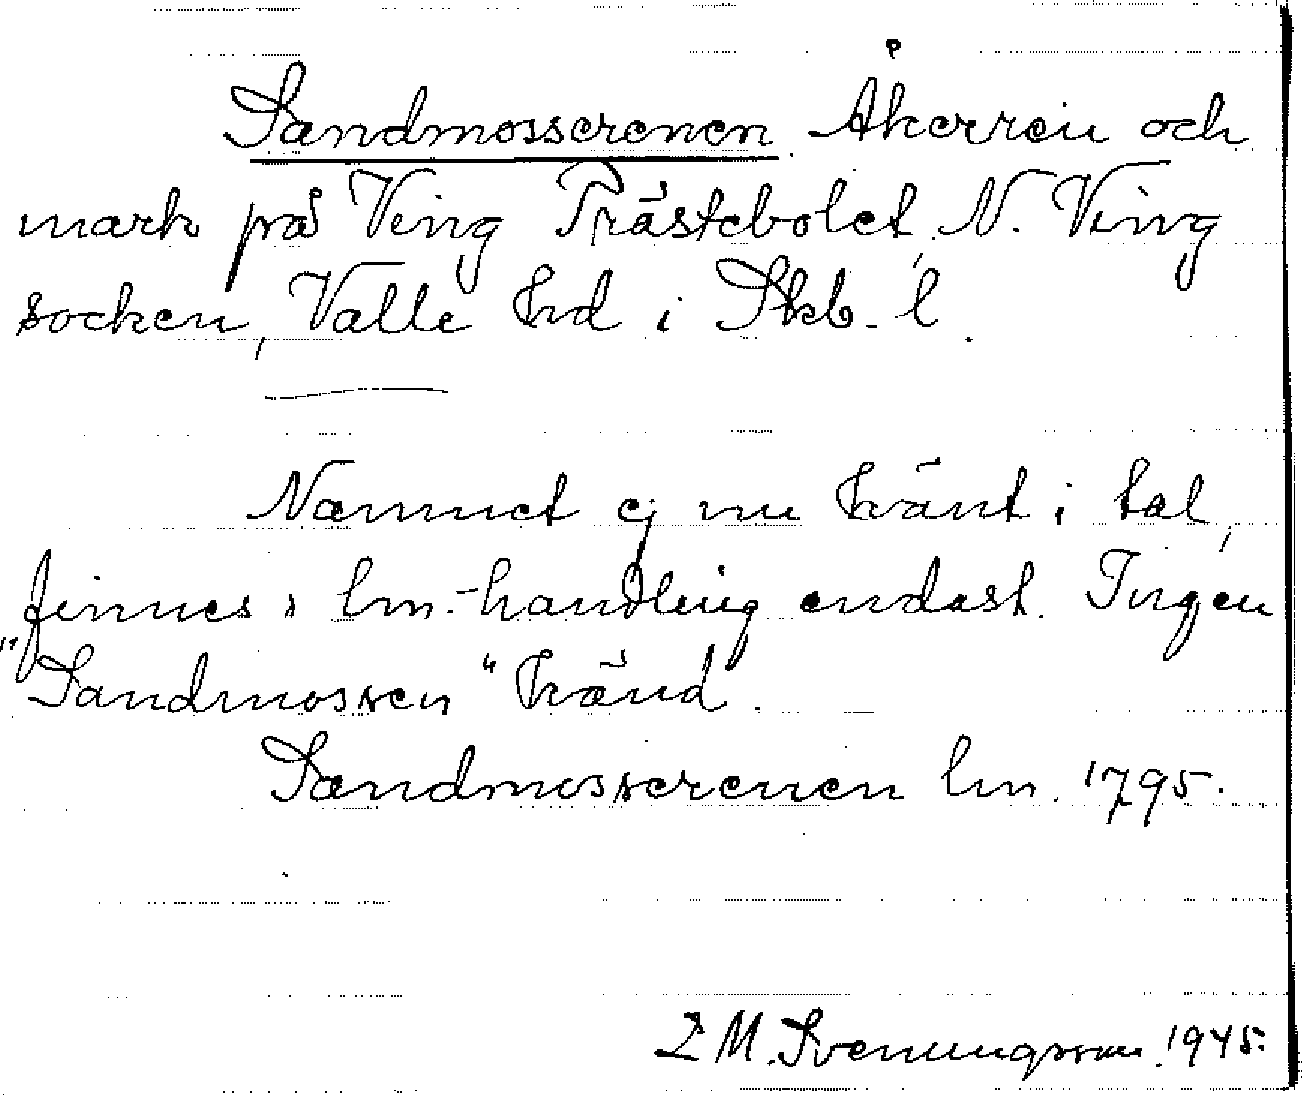 Sandmosserenen. Åkerren och
mark på Ving Prästebolet, N. Ving
socken, Valle hd i Skb. l.
Namnet ej nu känt i tal,
finnes i lm.-handling endast. Ingen
"Sandmossen" känd.
Sandmosserenen lm. 1795.
M. Svenungsson. 1945.